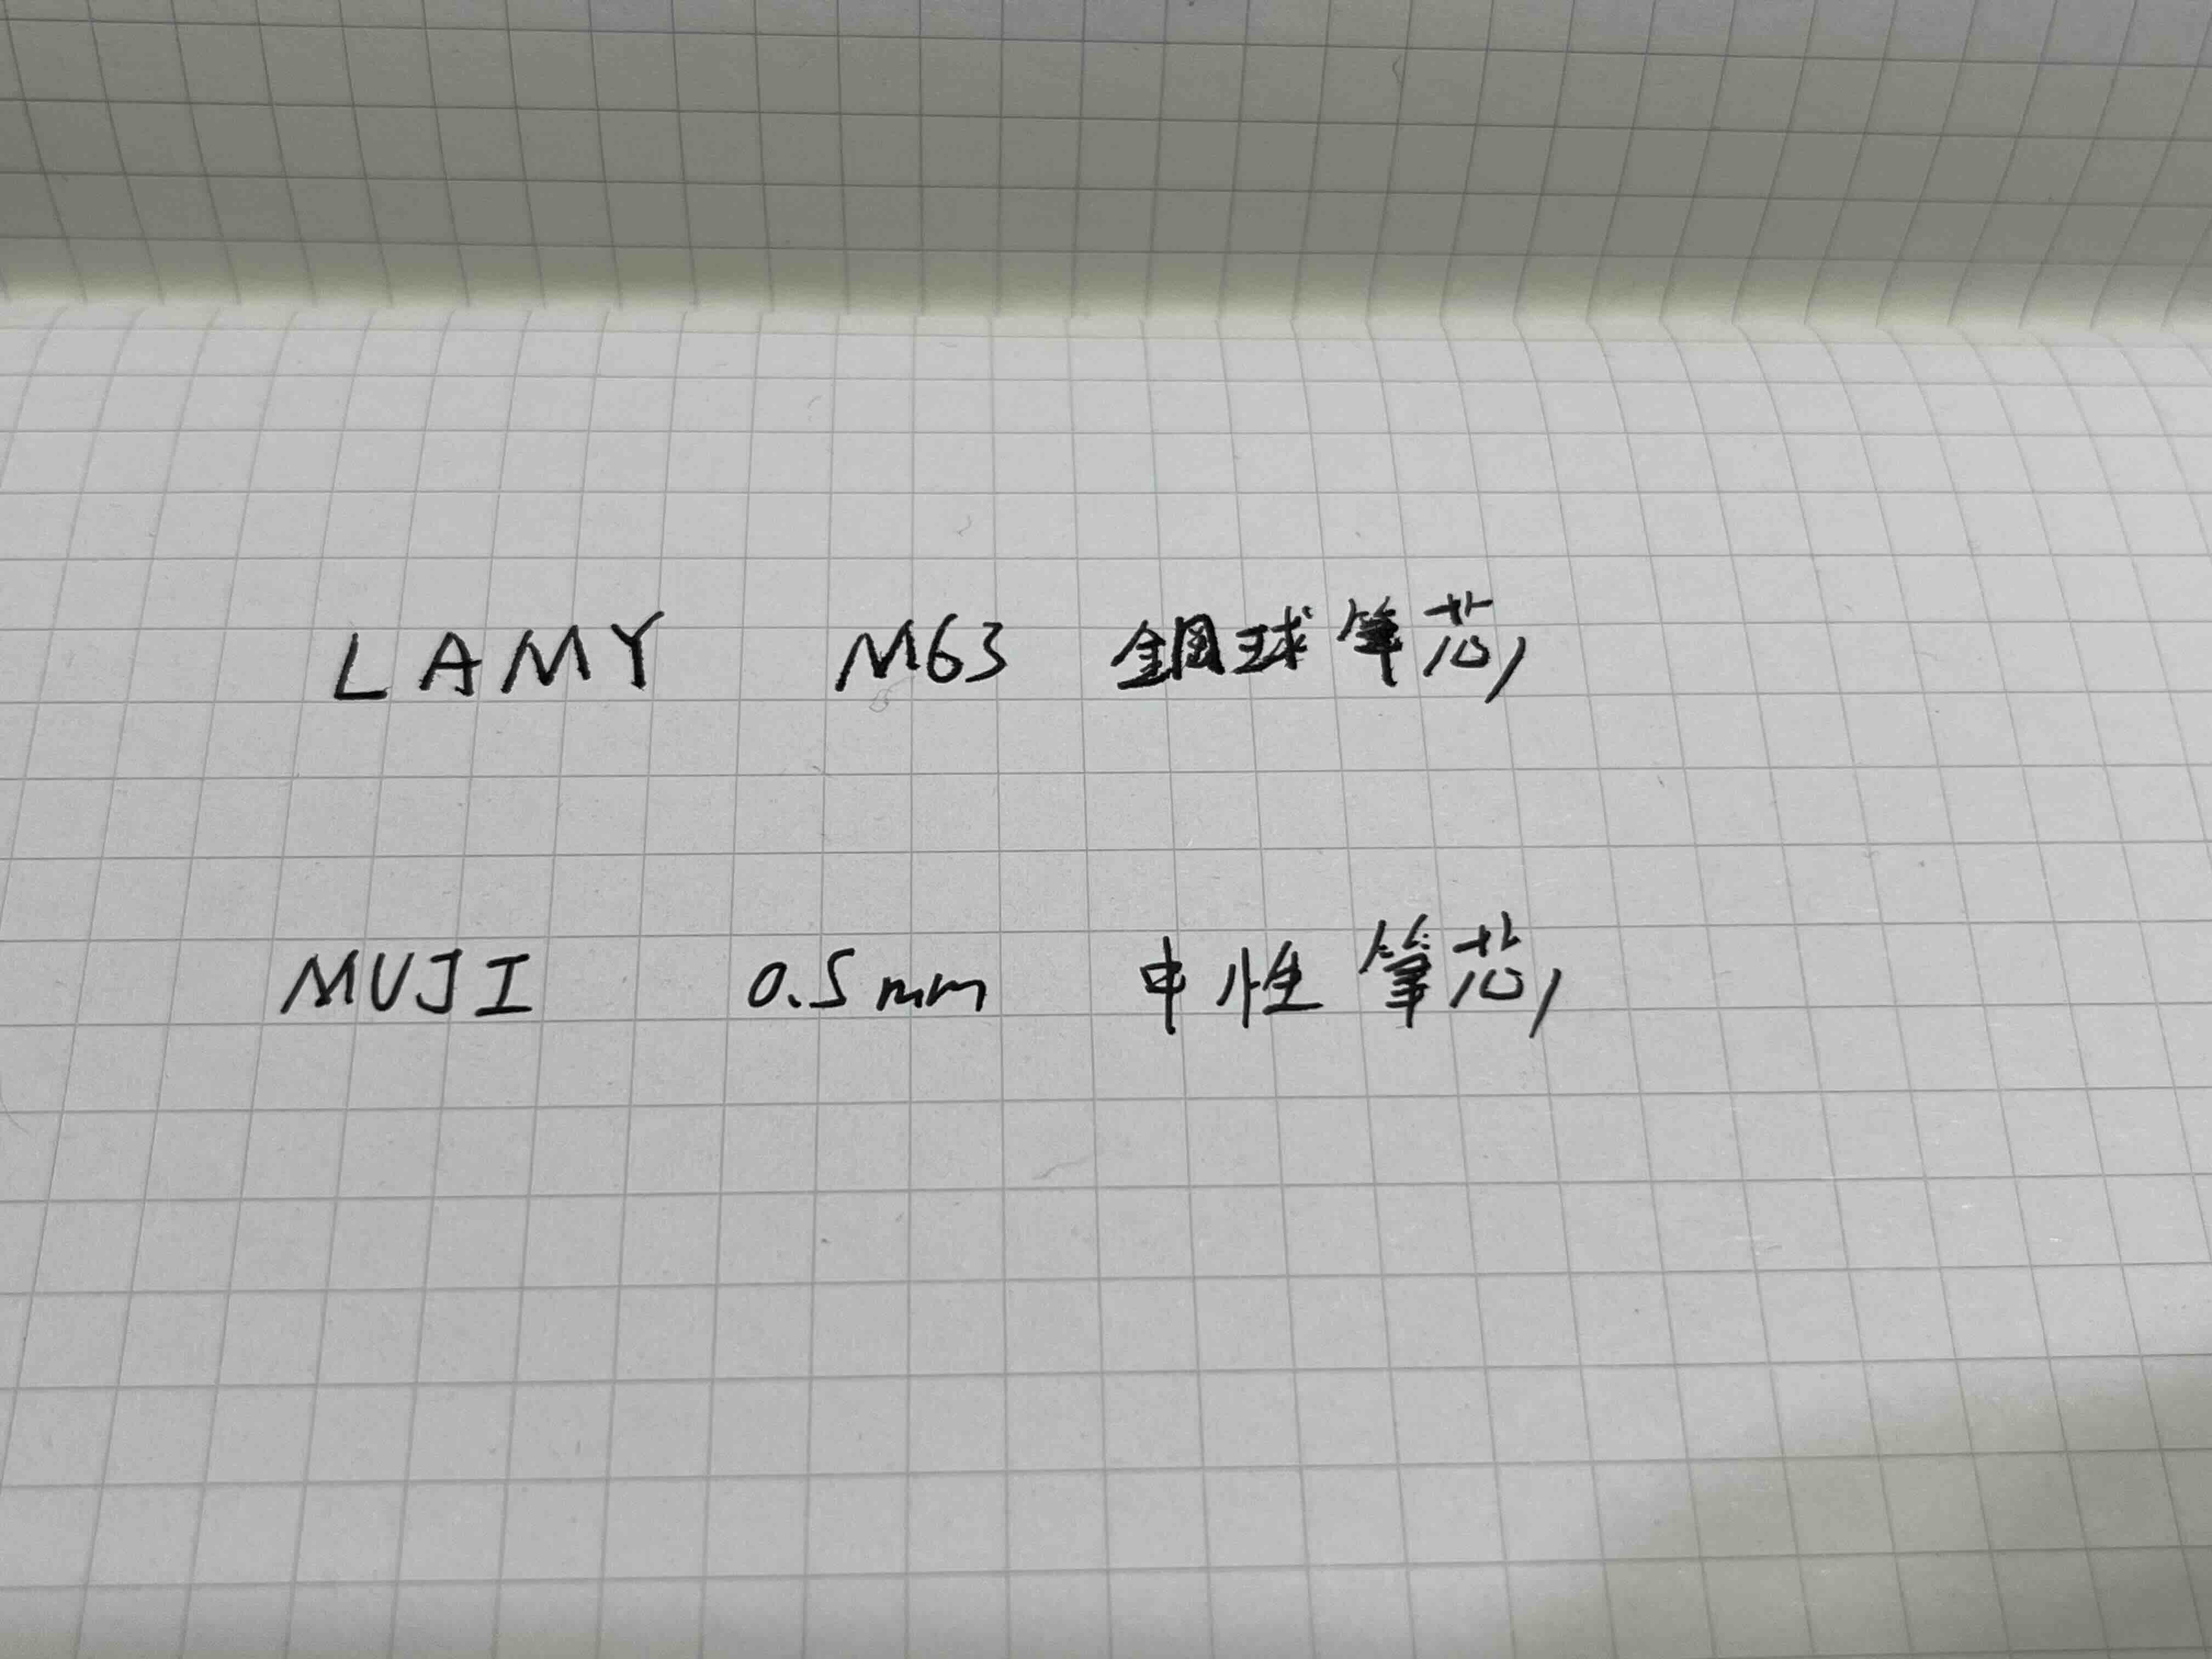 LAMY M63 鋼球筆芯
MUJI 0.5mm 中性筆芯